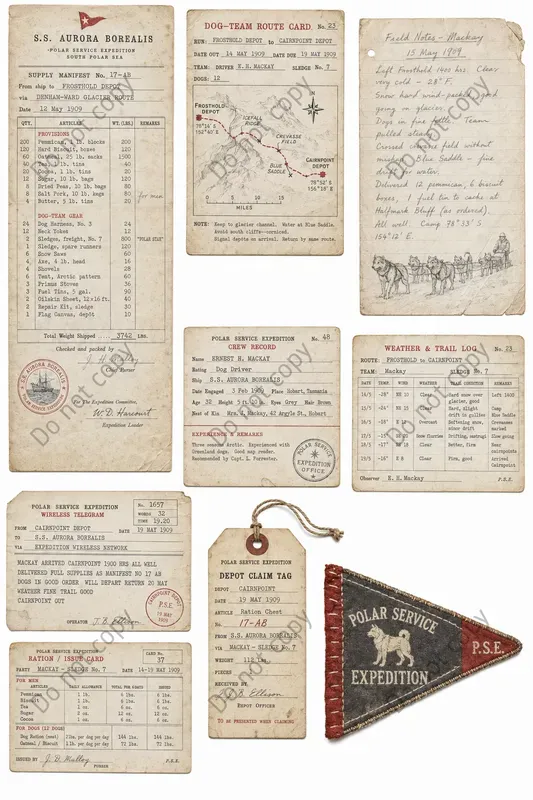 S.S. AURORA BOREALIS
-POLAR SERVICE EXPEDITION
SOUTH POLAR SEA
SUPPLY MANIFEST No. 17-AB
From ship to FROSTHOLD DEPOT
via DENHAM-WARD GLACIER ROUTE
Date 12 May 1909
QTY. ARTICLES WT.(LBS.) REMARKS
PROVISIONS
200 Pemmican, 1 lb. blocks 200
120 Hard Biscuit, boxes 120
60 Oatmeal, 25 lb. sacks 1500
40 Tea, lb. tins 40
20 Cocoa, 1 lb. tins 20
12 Sugar, 10 lb. bags 120
8 Dried Peas, 10 lb. bags 80
8 Salt Pork, 10 lb. kegs 80 for men
4 Butter, 5 lb. tins 20
DOG-TEAM GEAR
24 Dog Harness, No. 3 24
12 Neck Yokes 12
2 Sledges, freight, No. 7 800 "POLAR STAR"
1 Sledge, spare runners 120
6 Snow Saws 60
4 Axe, 4 lb. head 16
4 Shovels 28
6 Tent, Arctic pattern 60
3 Primus Stoves 36
3 Fuel Tins, 5 gal. 90
2 Oilskin Sheet, 12x16 ft. 40
2 Repair Kit, sledge 30
1 Flag Canvas, depôt 10
Total Weight Shipped 3742 LBS.
Checked and packed by
J. H. Malley
Chief Purser
S.S. AURORA BOREALIS
For The Expedition Committee,
W.D. Harcourt
Expedition Leader
DOG-TEAM ROUTE CARD No. 23
RUN: FROSTHOLD DEPOT to CAIRNPOINT DEPOT
DATE OUT 14 MAY 1909 DATE DUE 19 MAY 1909
TEAM: DRIVER E. H. MACKAY SLEDGE No. 7
DOGS: 12
FROSTHOLD DEPOT
78°14' S
152°40' E
ICEFALL RIDGE
CREVASSE FIELD
BLUE SADDLE
CAIRNPOINT DEPOT
78°52' S
156°18' E
N
0 5 10 15
MILES
NOTE: Keep to glacier channel. Water at Blue Saddle.
Avoid south cliffs-corniced.
Signal depôts on arrival. Return by same route.
Field Notes - Mackay
15 May 1909
Left Frosthold 1400 hrs. Clear
very cold - 28° F.
Snow hard wind-packed, good
going on glacier.
Dogs in fine fettle. Team
pulled steady.
Crossed crevasse field without
mishap. Blue Saddle - fine
drift for water.
Delivered 12 pemmican, 6 biscuit
boxes, 1 fuel tin to cache at
Halfmark Bluff (as ordered).
All well. Camp 78°33' S
154°12' E.
POLAR SERVICE EXPEDITION No. 48
CREW RECORD
Name ERNEST H. MACKAY
Rating Dog Driver
Ship S.S. AURORA BOREALIS
Date Engaged 3 Feb 1909 Place Hobart, Tasmania
Age 32 Height 5 ft. 10 in. Eyes Grey Hair Brown
Next of Kin Mrs. J. Mackay, 42 Argyle St., Hobart
EXPERIENCE & REMARKS
Three seasons Arctic. Experienced with
Greenland dogs. Good map reader.
Recommended by Capt. L. Forrester.
POLAR SERVICE
EXPEDITION
OFFICE
WEATHER & TRAIL LOG No. 23
ROUTE: FROSTHOLD to CAIRNPOINT
TEAM: Mackay SLEDGE No. 7
DATE TEMP. WIND WEATHER TRAIL CONDITION REMARKS
Observer E. H. Mackay P.S.E.
POLAR SERVICE EXPEDITION
WIRELESS TELEGRAM
No. 1657
WORDS 32
TIME 19.20
FROM CAIRNPOINT DEPOT DATE 19 MAY 1909
TO S.S. AURORA BOREALIS
VIA EXPEDITION WIRELESS NETWORK
MACKAY ARRIVED CAIRNPOINT 1900 HRS ALL WELL
DELIVERED FULL SUPPLIES AS MANIFEST NO 17 AB
DOGS IN GOOD ORDER WILL DEPART RETURN 20 MAY
WEATHER FINE TRAIL GOOD
CAIRNPOINT OUT
OPERATOR J.B. Ellison
CAIRNPOINT DEPOT
P.S.E.
19 MAY
1909
POLAR SERVICE EXPEDITION
RATION / ISSUE CARD
CARD No. 37
PARTY MACKAY - SLEDGE No. 7 14-19 MAY 1909
FOR MEN
ARTICLES DAILY ALLOWANCE TOTAL FOR 6 DAYS ISSUED
Pemmican 1 lb. 6 lbs. 6 lbs.
Biscuit 1 lb. 6 lbs. 6 lbs.
Tea
Sugar 2 oz. 12 oz. 12 oz.
Cocoa
FOR DOGS (12 DOGS)
Dog Ration (meat) 2 lbs. per dog per day 144 lbs. 144 lbs.
Oatmeal / Biscuit 1 lb. per dog per day 72 lbs. 72 lbs.
ISSUED BY J.B. Malley P.S.E.
PURSER
POLAR SERVICE EXPEDITION
DEPOT CLAIM TAG
DEPOT CAIRNPOINT
DATE 19 MAY 1909
ARTICLE Ration Chest
No. 17-AB
FROM S.S. AURORA BOREALIS
VIA MACKAY - SLEDGE No. 7
WEIGHT 112 Lbs.
PIECES
RECEIVED BY
J.B. Ellison
DEPOT OFFICER
TO BE PRESENTED WHEN CLAIMING
POLAR SERVICE
EXPEDITION
P.S.E.
Do not copy
Do not copy
Do not copy
Do not copy
Do not copy
Do not copy
Do not copy
Do not copy
Do not copy